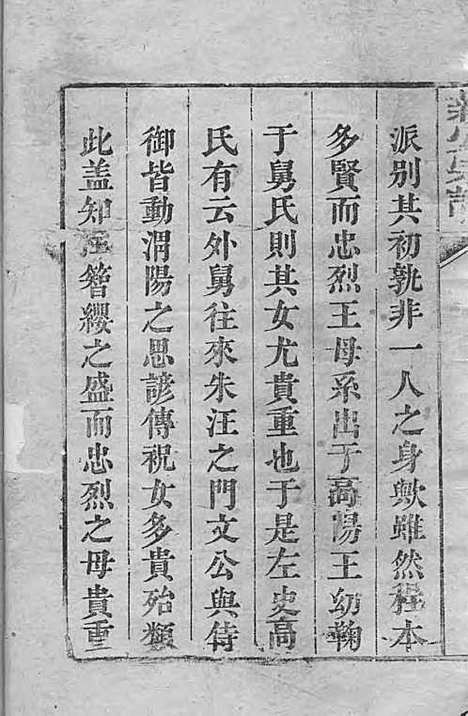 派别其初孰非一人之身歟雖然程本
多賢而忠烈王母系出于高陽王幼鞠
于舅氏則其女尤貴重也于是左史高
氏有云外舅往來朱汪之門文公與侍
御皆動渭陽之思諺傳祝女多貴殆類
此盖知簪纓之盛而忠烈之母貴重